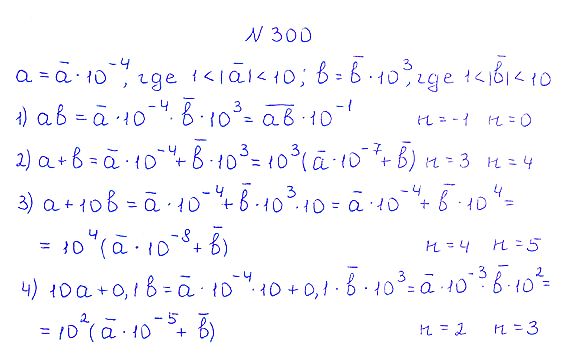 N 300
a = a̅ · 10⁻⁴, где 1 < |a̅| < 10; b = b̅ · 10³, где 1 < |b̅| < 10
1) ab = a̅ · 10⁻⁴ · b̅ · 10³ = a̅b̅ · 10⁻¹ n = -1 n = 0
2) a + b = a̅ · 10⁻⁴ + b̅ · 10³ = 10³(a̅ · 10⁻⁷ + b̅) n = 3 n = 4
3) a + 10b = a̅ · 10⁻⁴ + b̅ · 10³ · 10 = a̅ · 10⁻⁴ + b̅ · 10⁴ =
= 10⁴(a̅ · 10⁻⁸ + b̅) n = 4 n = 5
4) 10a + 0,1b = a̅ · 10⁻⁴ · 10 + 0,1 · b̅ · 10³ = a̅ · 10⁻³ · b̅ · 10² =
= 10²(a̅ · 10⁻⁵ + b̅) n = 2 n = 3